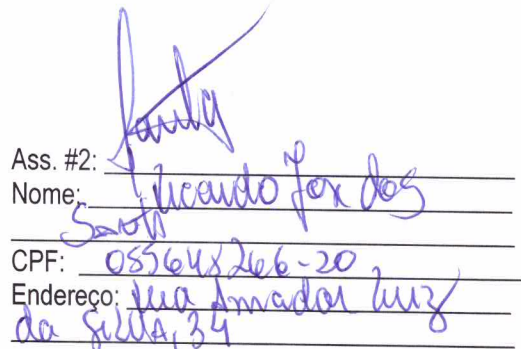 Ass. #2:
Nome: Ricardo Fox dos
Santos
CPF: 085648266-20
Endereço: Rua Amador Luiz
da Silva, 34